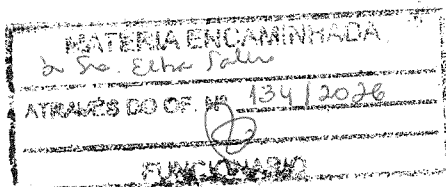 MATERIA ENCAMINHADA
a Sra. Elba
ATRAVÉS DO OF. Nº 134/2026
FUNCIONARIO